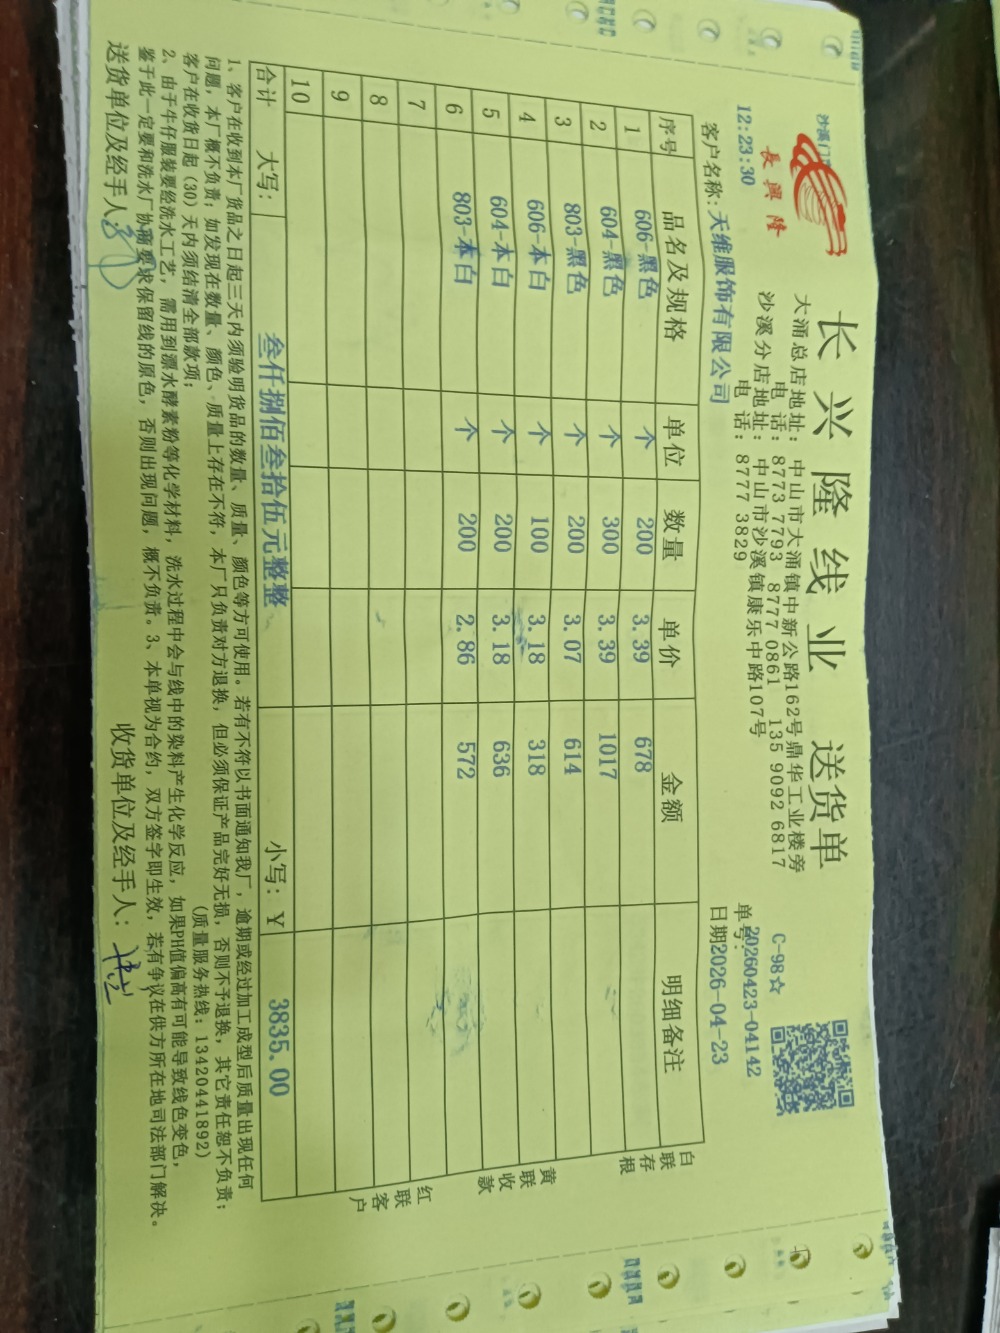 长兴隆线业 送货单
長興隆
沙溪门
大涌总店地址: 中山市大涌镇中新公路162号鼎华工业楼旁
电 话: 8773 7793 8777 0861 135 9092 6817
沙溪分店地址: 中山市沙溪镇康乐中路107号
电 话: 8777 3829
C-98☆
12:23:30
单号: 20260423-04142
客户名称: 天维服饰有限公司
日期2026-04-23
序号 品名及规格 单位 数量 单价 金额 明细备注
1 606-黑色 个 200 3.39 678
2 604-黑色 个 300 3.39 1017
3 803-黑色 个 200 3.07 614
4 606-本白 个 100 3.18 318
5 604-本白 个 200 3.18 636
6 803-本白 个 200 2.86 572
7
8
9
10
合计 大写: 叁仟捌佰叁拾伍元整整 小写: Y 3835.00
白联存根
黄联收款
红联客户
1、客户在收到本厂货品之日起三天内须验明货品的数量、质量、颜色等方可使用。若有不符以书面通知我厂，逾期或经过加工成型后质量出现任何
问题，本厂概不负责；如发现在数量、颜色、质量上存在不符，本厂只负责对方退换，但必须保证产品完好无损，否则不予退换，其它责任恕不负责；
客户在收货日起（30）天内须结清全部款项； （质量服务热线：13420441892）
2、由于牛仔服装要经洗水工艺，需用到漂水酵素粉等化学材料，洗水过程中会与线中的染料产生化学反应，如果PH值偏高有可能导致线色变色，
鉴于此一定要和洗水厂协商要求保留线的原色，否则出现问题，概不负责。3、本单视为合约，双方签字即生效，若有争议在供方所在地司法部门解决。
送货单位及经手人: 收货单位及经手人: